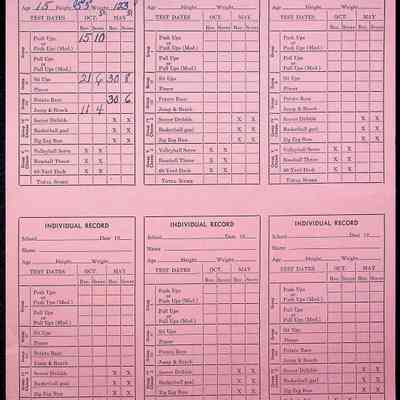 Age 15 Height Weight 123
TEST DATES OCT. MAY
Rec. Score Rec. Score
Push Ups 15 10
or
Push Ups (Mod.)
or
Pull Ups
or
Pull Ups (Mod.)
Sit Ups 21 6 30 8
Potato Race 30 6
Jump & Reach 11 4
Soccer Dribble X X
Basketball goal X X
Zig Zag Run X X
Volleyball Serve X X
Baseball Throw X X
60 Yard Dash X X
TOTAL SCORE
Age Height Weight
TEST DATES OCT. MAY
Rec. Score Rec. Score
Push Ups
or
Push Ups (Mod.)
or
Pull Ups
or
Pull Ups (Mod.)
Sit Ups
Potato Race
Jump & Reach
Soccer Dribble X X
Basketball goal X X
Zig Zag Run X X
Volleyball Serve X X
Baseball Throw X X
60 Yard Dash X X
TOTAL SCORE
Age Height Weight
TEST DATES OCT. MAY
Rec. Score Rec. Score
Push Ups
or
Push Ups (Mod.)
or
Pull Ups
or
Pull Ups (Mod.)
Sit Ups
Potato Race
Jump & Reach
Soccer Dribble X X
Basketball goal X X
Zig Zag Run X X
Volleyball Serve X X
Baseball Throw X X
60 Yard Dash X X
TOTAL SCORE
INDIVIDUAL RECORD
School Date 19
Name
Age Height Weight
TEST DATES OCT. MAY
Rec. Score Rec. Score
Push Ups
or
Push Ups (Mod.)
or
Pull Ups
or
Pull Ups (Mod.)
Sit Ups
Potato Race
Jump & Reach
Soccer Dribble X X
Basketball goal X X
Zig Zag Run X X
INDIVIDUAL RECORD
School Date 19
Name
Age Height Weight
TEST DATES OCT. MAY
Rec. Score Rec. Score
Push Ups
or
Push Ups (Mod.)
or
Pull Ups
or
Pull Ups (Mod.)
Sit Ups
Potato Race
Jump & Reach
Soccer Dribble X X
Basketball goal X X
Zig Zag Run X X
INDIVIDUAL RECORD
School Date 19
Name
Age Height Weight
TEST DATES OCT. MAY
Rec. Score Rec. Score
Push Ups
or
Push Ups (Mod.)
or
Pull Ups
or
Pull Ups (Mod.)
Sit Ups
Potato Race
Jump & Reach
Soccer Dribble X X
Basketball goal X X
Zig Zag Run X X